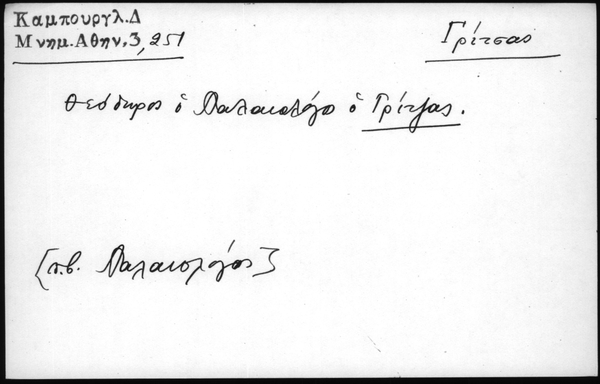 Καμπουργλ.Δ
Μνημ.Αθην.3,251
Γρίτσας
Θεόδωρος ὁ Παλαιολόγο ὁ Γρίτζας.
[π.β. Παλαιολόγος]